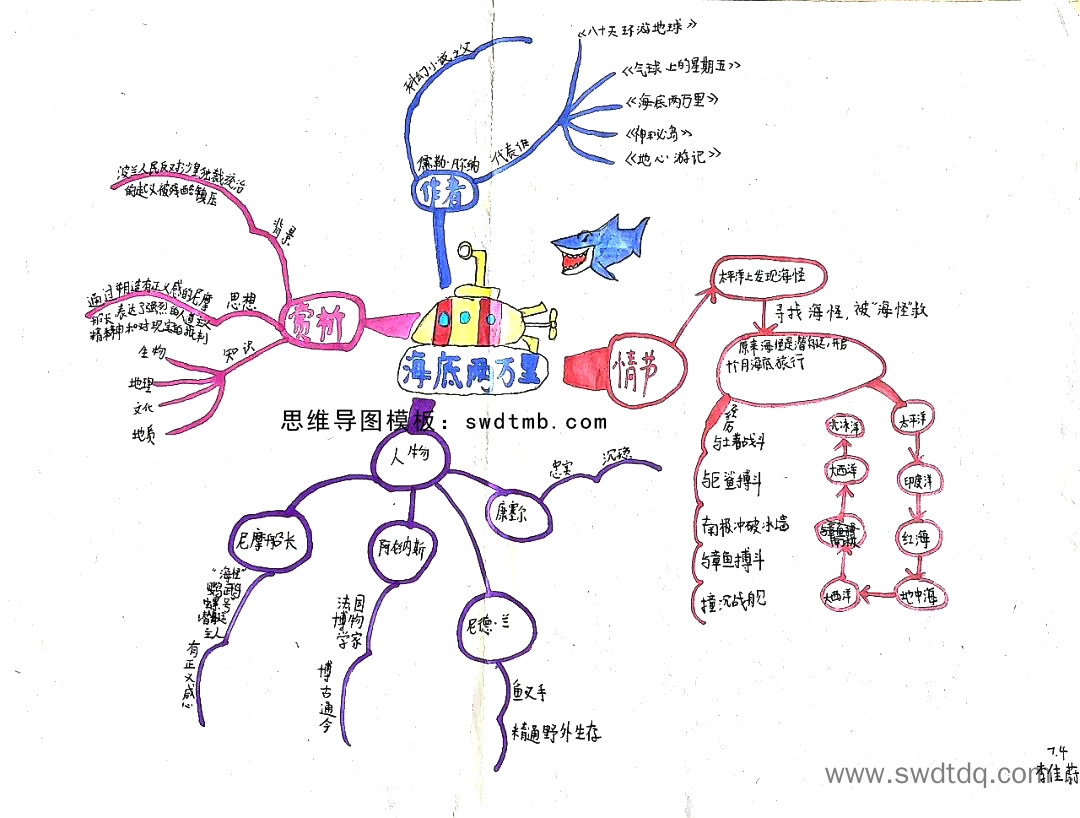 海底两万里
作者
儒勒·凡尔纳
科幻小说之父
代表作
《八十天环游地球》
《气球上的星期五》
《海底两万里》
《神秘岛》
《地心游记》
赏析
背景
波兰人民反对沙皇独裁统治
的起义被残酷镇压
思想
通过塑造有正义感的尼摩
船长表达了强烈的人道主义
精神和对现实的批判
知识
生物
地理
文化
地质
情节
太平洋上发现海怪
寻找海怪,被"海怪"救
原来海怪是潜艇,开启
十个月海底旅行
经历
与土著战斗
与巨鲨搏斗
南极冲破冰墙
与章鱼搏斗
撞沉战舰
太平洋
印度洋
红海
地中海
大西洋
南极
大西洋
北冰洋
思维导图模板：swdtmb.com
人物
尼摩船长
"海怪"
鹦鹉
螺号
潜艇
主人
有正义感
阿龙纳斯
法国
博物
学家
博古通今
尼德·兰
鱼叉手
精通野外生存
康塞尔
忠实
沉稳
7.4
www.swdtdq.com